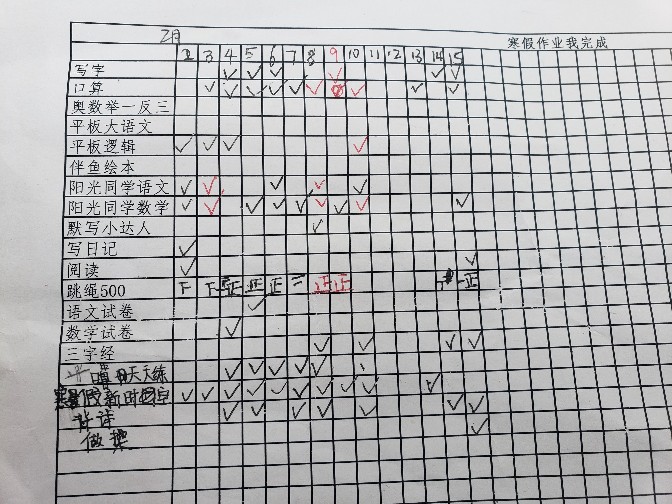 2月
寒假作业我完成
2 3 4 5 6 7 8 9 10 11 12 13 14 15
写字
口算
奥数举一反三
平板大语文
平板逻辑
伴鱼绘本
阳光同学语文
阳光同学数学
默写小达人
写日记
阅读
跳绳500 下 下 正 正 正 正 正 正
语文试卷
数学试卷
三字经
天天练
寒假新时空
背诗
做操